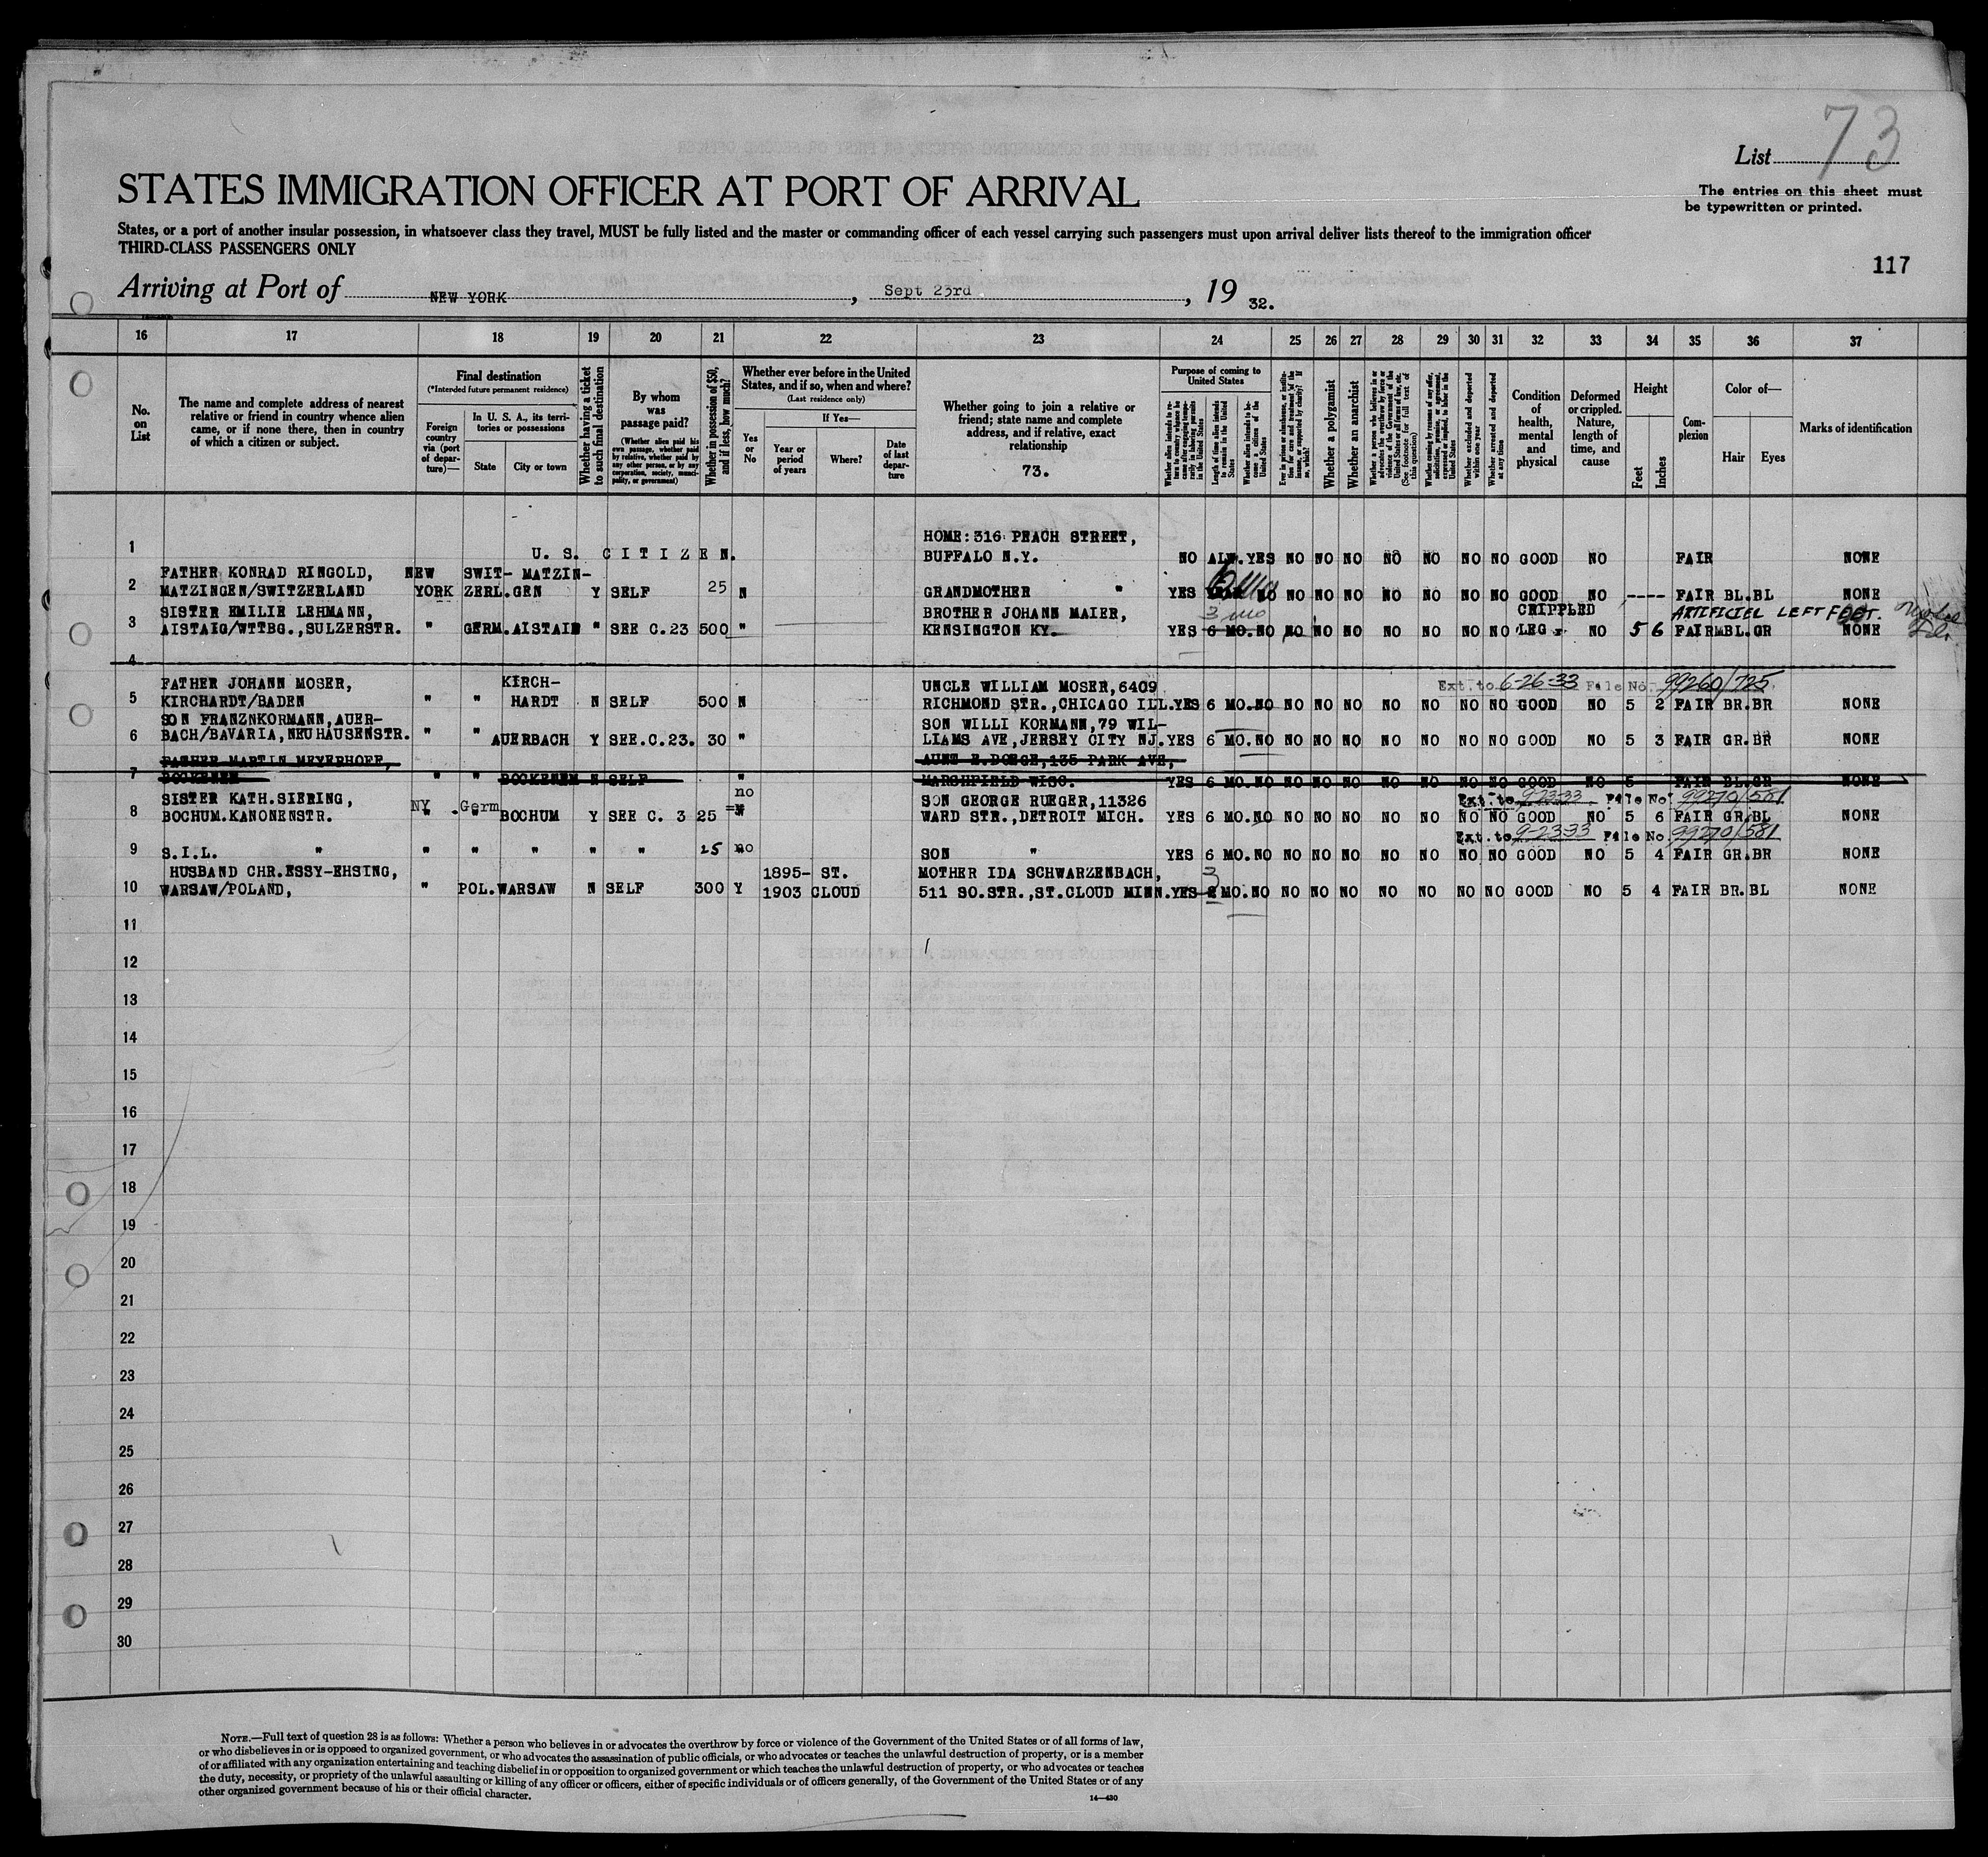 73
List
The entries on this sheet must
be typewritten or printed.
STATES IMMIGRATION OFFICER AT PORT OF ARRIVAL
States, or a port of another insular possession, in whatsoever class they travel, MUST be fully listed and the master or commanding officer of each vessel carrying such passengers must upon arrival deliver lists thereof to the immigration officer
THIRD-CLASS PASSENGERS ONLY
117
Arriving at Port of NEW YORK, Sept 23rd, 19 32.
16 17 18 19 20 21 22 23 24 25 26 27 28 29 30 31 32 33 34 35 36 37
No. on List
The name and complete address of nearest relative or friend in country whence alien came, or if none there, then in country of which a citizen or subject.
Final destination
(*Intended future permanent residence)
Foreign country via (port of departure)—
In U. S. A., its territories or possessions
State
City or town
Whether having a ticket to such final destination
By whom was passage paid?
(Whether alien paid his own passage, whether paid by relative, whether paid by any other person, or by any corporation, society, municipality, or government)
Whether in possession of $50, and if less, how much?
Whether ever before in the United States, and if so, when and where?
(Last residence only)
Yes or No
If Yes—
Year or period of years
Where?
Date of last departure
Whether going to join a relative or friend; state name and complete address, and if relative, exact relationship
73.
Purpose of coming to United States
Length of time alien intends to remain in the United States
Whether alien intends to become a citizen of the United States
Whether a polygamist
Whether an anarchist
Whether excluded and deported within one year
Whether arrested and deported at any time
Condition of health, mental and physical
Deformed or crippled. Nature, length of time, and cause
Height
Feet
Inches
Complexion
Color of—
Hair
Eyes
Marks of identification
HOME: 316 PEACH STREET,
1 U. S. C I T I Z E N. BUFFALO N.Y. NO ALW. YES NO NO NO NO NO NO NO GOOD NO FAIR NONE
FATHER KONRAD RINGOLD, NEW SWIT- MATZIN-
2 MATZINGEN/SWITZERLAND YORK ZERL. GEN Y SELF 25 N GRANDMOTHER " YES 6 mo NO NO NO NO NO NO NO NO GOOD NO ---- FAIR BL. BL NONE
SISTER EMILIE LEHMANN, BROTHER JOHANN MAIER, 3 mo CRIPPLED ARTIFICIEL LEFT FOOT.
3 AISTAIG/WTTBG., SULZERSTR. " GERM. AISTAIG " SEE C.23 500 " KENSINGTON KY. YES 6 MO. NO NO NO NO NO NO NO NO LEG NO 5 6 FAIR BL. GR NONE
4
FATHER JOHANN MOSER, KIRCH- UNCLE WILLIAM MOSER, 6409 Ext. to 6-26-33 File No. 99260/725
5 KIRCHARDT/BADEN " " HARDT N SELF 500 N RICHMOND STR., CHICAGO ILL. YES 6 MO. NO NO NO NO NO NO NO NO GOOD NO 5 2 FAIR BR. BR NONE
SON FRANZNKORMANN, AUER- SON WILLI KORMANN, 79 WIL-
6 BACH/BAVARIA, NEUHAUSENSTR. " " AUERBACH Y SEE.C.23. 30 " LIAMS AVE, JERSEY CITY NJ. YES 6 MO. NO NO NO NO NO NO NO NO GOOD NO 5 3 FAIR GR. BR NONE
FATHER MARTIN MEYERHOFF, AUNT E. DOEGE, 135 PARK AVE,
7 BOCKENEM " " BOCKENEM N SELF " MARSHFIELD WISC. YES 6 MO. NO NO NO NO NO NO NO NO GOOD NO 5 FAIR BL. GR NONE
SISTER KATH. SIERING, NY. Germ no SON GEORGE RUEGER, 11326 Ext. to 9-23-33 File No. 99270/581
8 BOCHUM. KANONENSTR. " " BOCHUM Y SEE C. 3 25 WARD STR., DETROIT MICH. YES 6 MO. NO NO NO NO NO NO NO NO GOOD NO 5 6 FAIR GR. BL NONE
Ext. to 9-23-33 File No. 99270/581
9 S.I.L. " " " " " " 25 no SON " YES 6 MO. NO NO NO NO NO NO NO NO GOOD NO 5 4 FAIR GR. BR NONE
HUSBAND CHR. ESSY-EHSING, 1895- ST. MOTHER IDA SCHWARZENBACH, 3
10 WARSAW/POLAND, " POL. WARSAW N SELF 300 Y 1903 CLOUD 511 SO. STR., ST. CLOUD MINN. YES 2 MO. NO NO NO NO NO NO NO NO GOOD NO 5 4 FAIR BR. BL NONE
11
12
13
14
15
16
17
18
19
20
21
22
23
24
25
26
27
28
29
30
NOTE.—Full text of question 28 is as follows: Whether a person who believes in or advocates the overthrow by force or violence of the Government of the United States or of all forms of law,
or who disbelieves in or is opposed to organized government, or who advocates the assassination of public officials, or who advocates or teaches the unlawful destruction of property, or is a member
of or affiliated with any organization entertaining and teaching disbelief in or opposition to organized government or which teaches the unlawful destruction of property, or who advocates or teaches
the duty, necessity, or propriety of the unlawful assaulting or killing of any officer or officers, either of specific individuals or of officers generally, of the Government of the United States or of any
other organized government because of his or their official character.
14—430